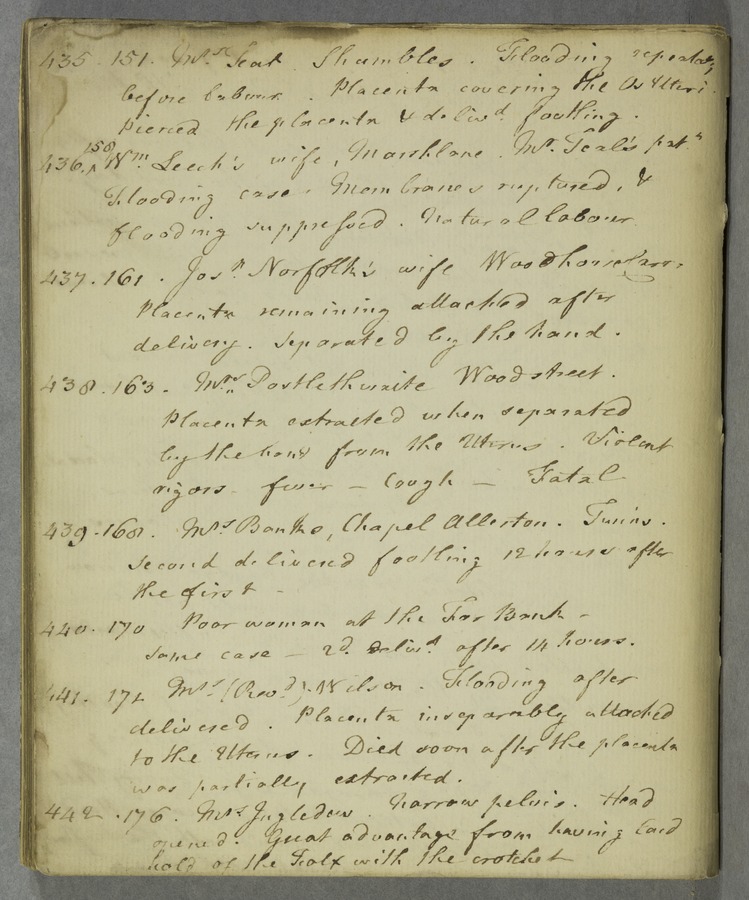 435. 151. Mrs. Scot Shambles. Flooding repeatedly
before labour. Placenta covering the Os Uteri.
Pierced the placenta & delivd. footling.
436. 158 Wm Leech's wife, Marshlane. Mr. Teal's patt.
Flooding case. Membranes ruptured, &
flooding suppressed. Natural labour
437. 161. Josh. Norfolk's wife Woodhouse Carr.
Placenta remaining attached after
delivery. Separated by the hand.
438. 163. Mrs. Postlethwaite Woodstreet.
Placenta extracted when separated
by the hand from the Uterus. Violent
rigors - fever - Cough - Fatal
439. 168. Mrs Banks, Chapel Allerton. Twins.
Second delivered footling 12 hours after
the first -
440. 170 Poor woman at the Far Bank -
same case - 2d. delivd. after 14 hours.
441. 172 Mrs (Revd.) Wilson. Flooding after
delivered. Placenta inseparably attached
to the Uterus. Died soon after the placenta
was partially extracted.
442. 176. Mrs Ingledew. Narrow pelvis. Head
opened. Great advantage from having laid
hold of the with the crotchet